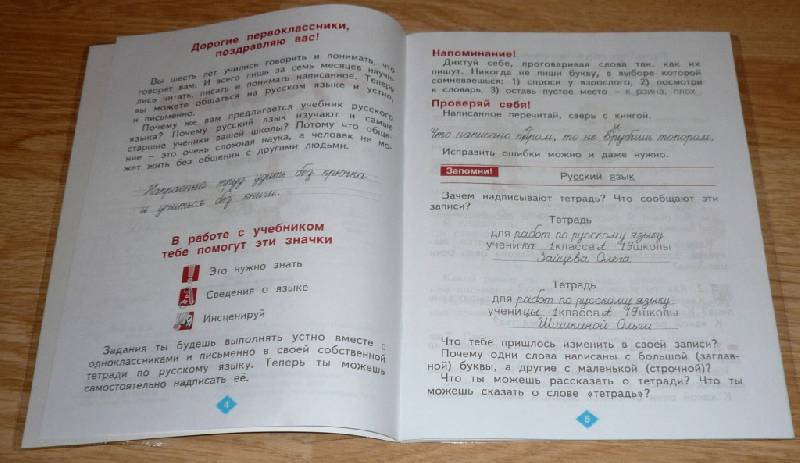 Дорогие первоклассники,
поздравляю вас!
Вы шесть лет учились говорить и понимать, что
говорят вам. И всего лишь за семь месяцев научи-
лись читать, писать и понимать написанное. Теперь
вы можете общаться на русском языке и устно,
и письменно.
Почему же вам предлагается учебник русского
языка? Почему русский язык изучают и самые
старшие ученики вашей школы? Потому что обще-
ние – это очень сложная наука, а человек не мо-
жет жить без общения с другими людьми.
Напрасный труд удить без крючка
и учиться без книги.
В работе с учебником
тебе помогут эти значки
Это нужно знать
Сведения о языке
Инсценируй
Задания ты будешь выполнять устно вместе с
одноклассниками и письменно в своей собственной
тетради по русскому языку. Теперь ты можешь
самостоятельно надписать её.
4
Напоминание!
Диктуй себе, проговаривая слова так, как их
пишут. Никогда не пиши букву, в выборе которой
сомневаешься: 1) спроси у взрослого, 2) посмотри
в словарь, 3) оставь пустое место –
Проверяй себя!
Написанное перечитай, сверь с книгой.
Что написано пером, то не вырубишь топором.
Исправить ошибки можно и даже нужно.
Запомни!
Русский язык
Зачем надписывают тетрадь? Что сообщают эти
записи?
Тетрадь
для работ по русскому языку
учени 1 класса 19 школы
Зайцева Ольга
Тетрадь
для работ по русскому языку
ученицы 1 класса 19 школы
Ольга
Что тебе пришлось изменить в своей записи?
Почему одни слова написаны с большой (заглав-
ной) буквы, а другие с маленькой (строчной)?
Что ты можешь рассказать о тетради? Что ты
можешь сказать о слове «тетрадь»?
5